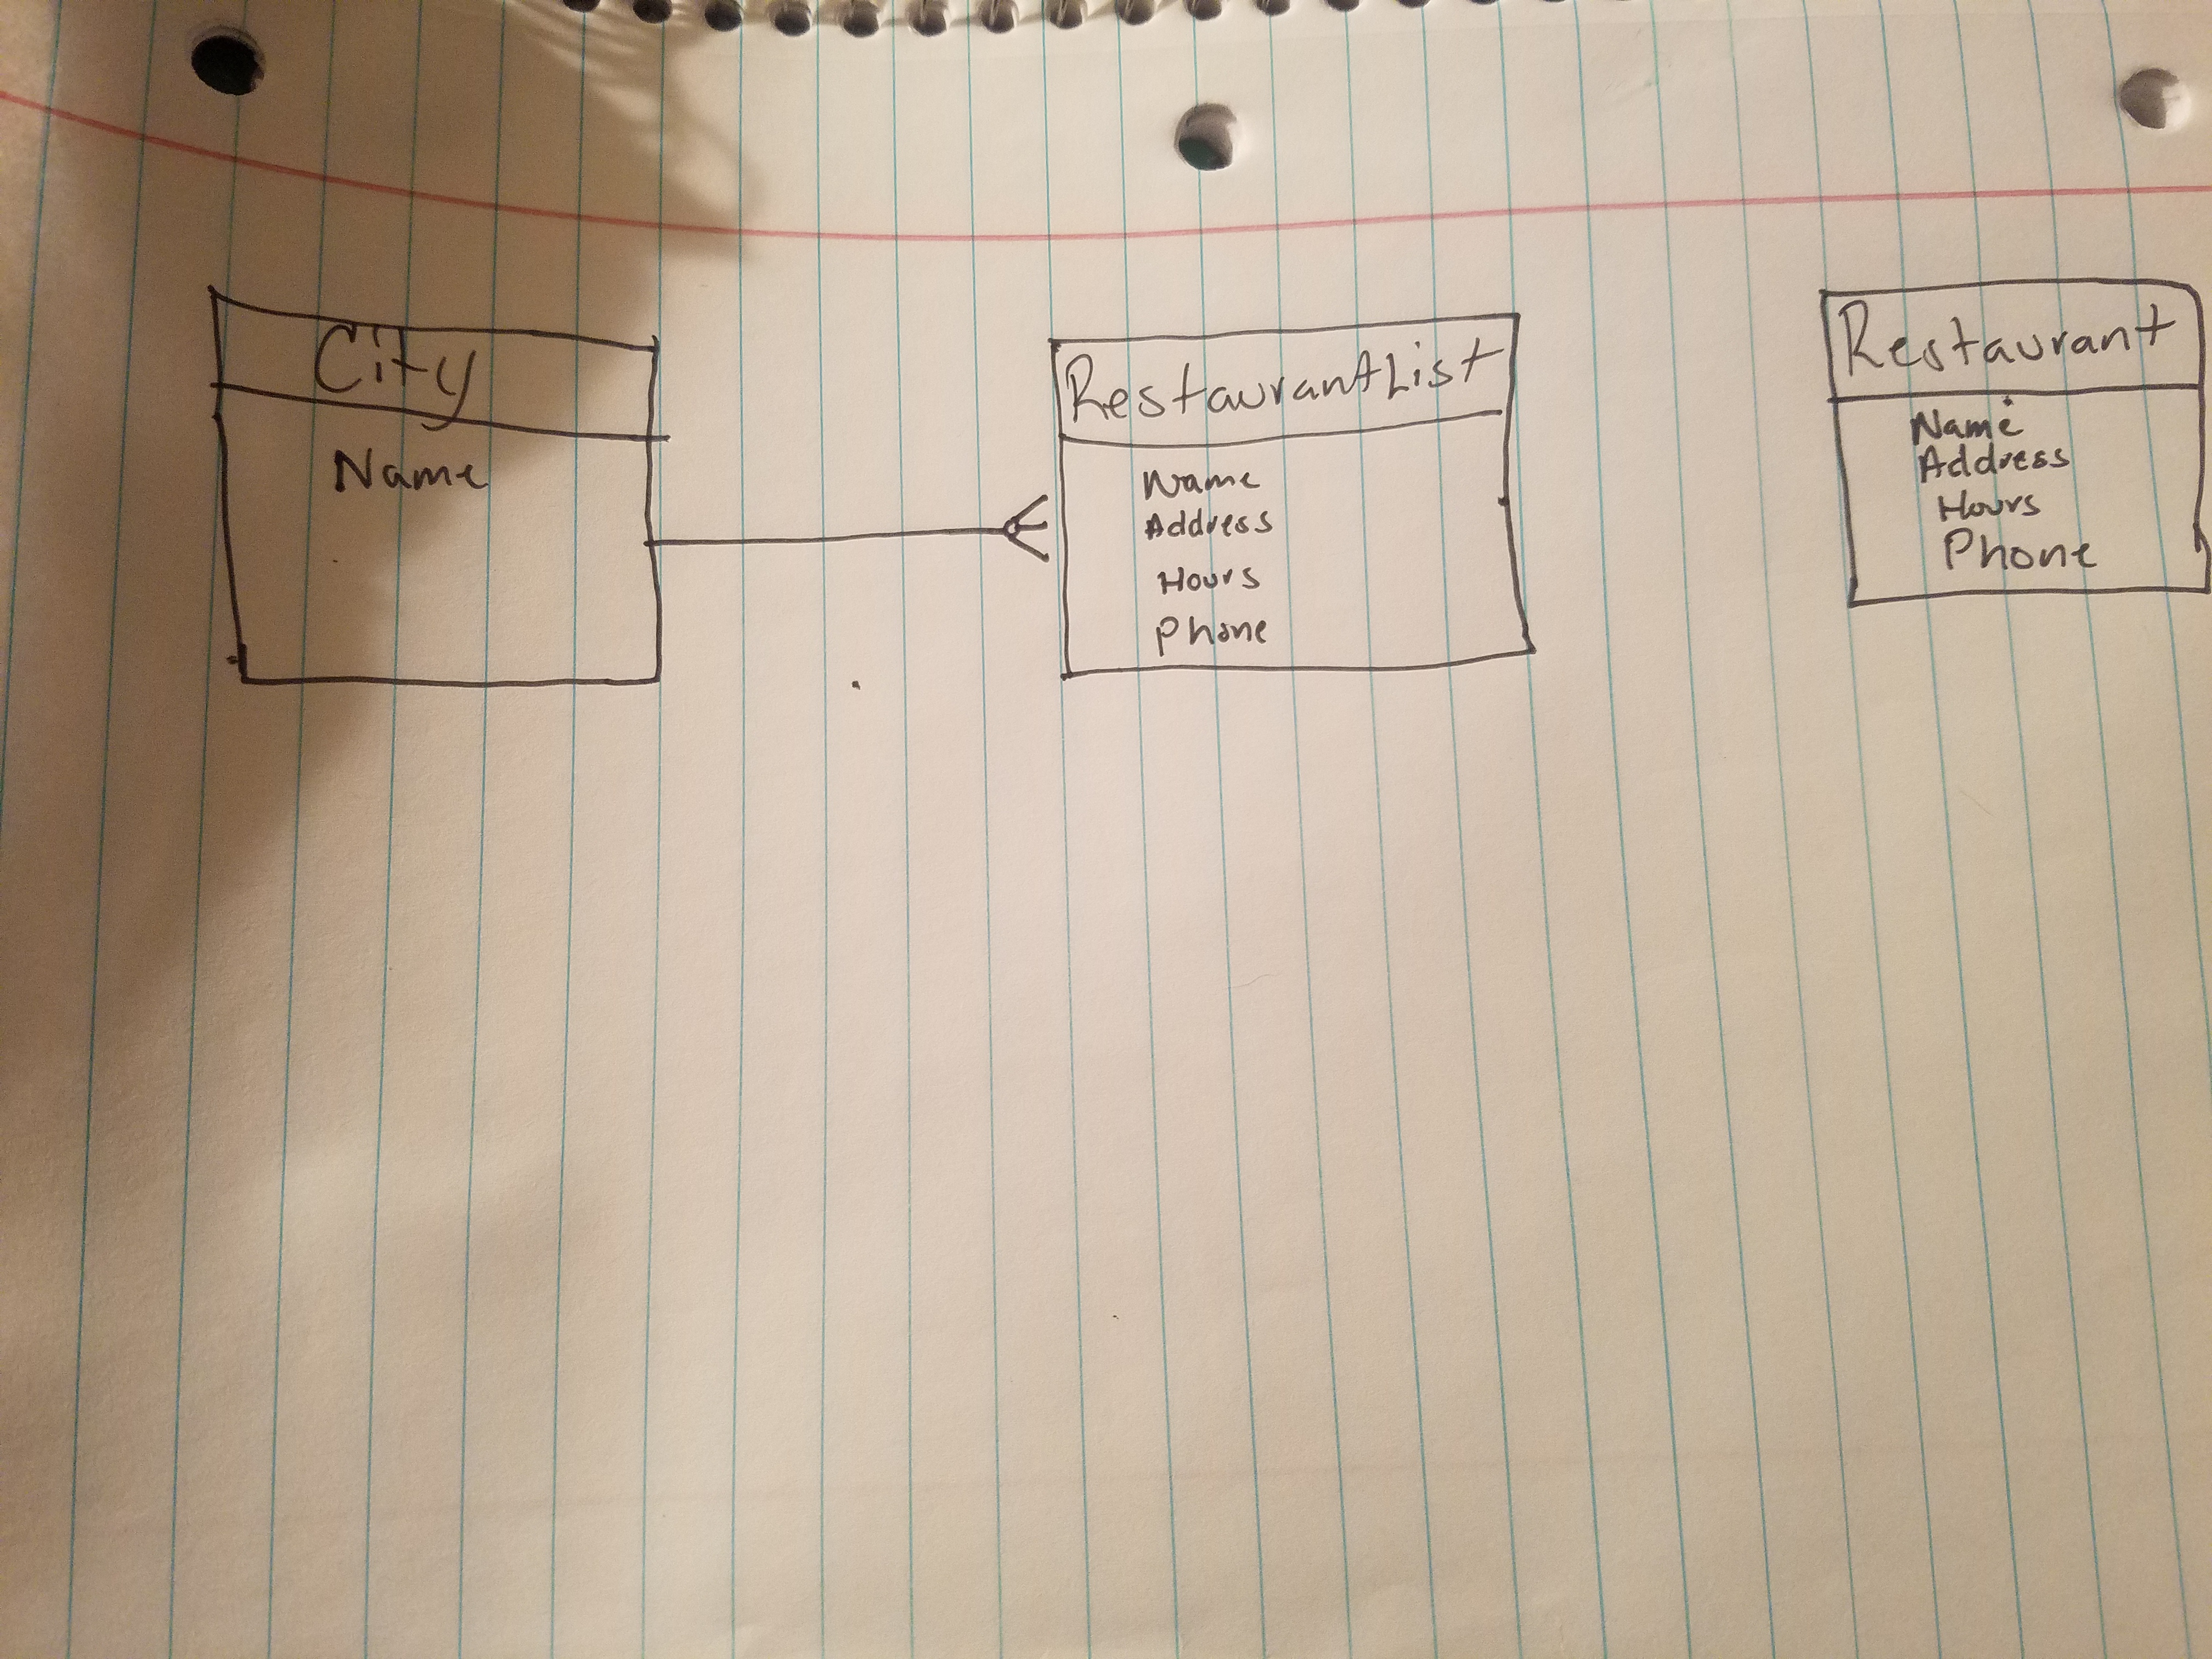 City
Name
RestaurantList
Name
Address
Hours
Phone
Restaurant
Name
Address
Hours
Phone